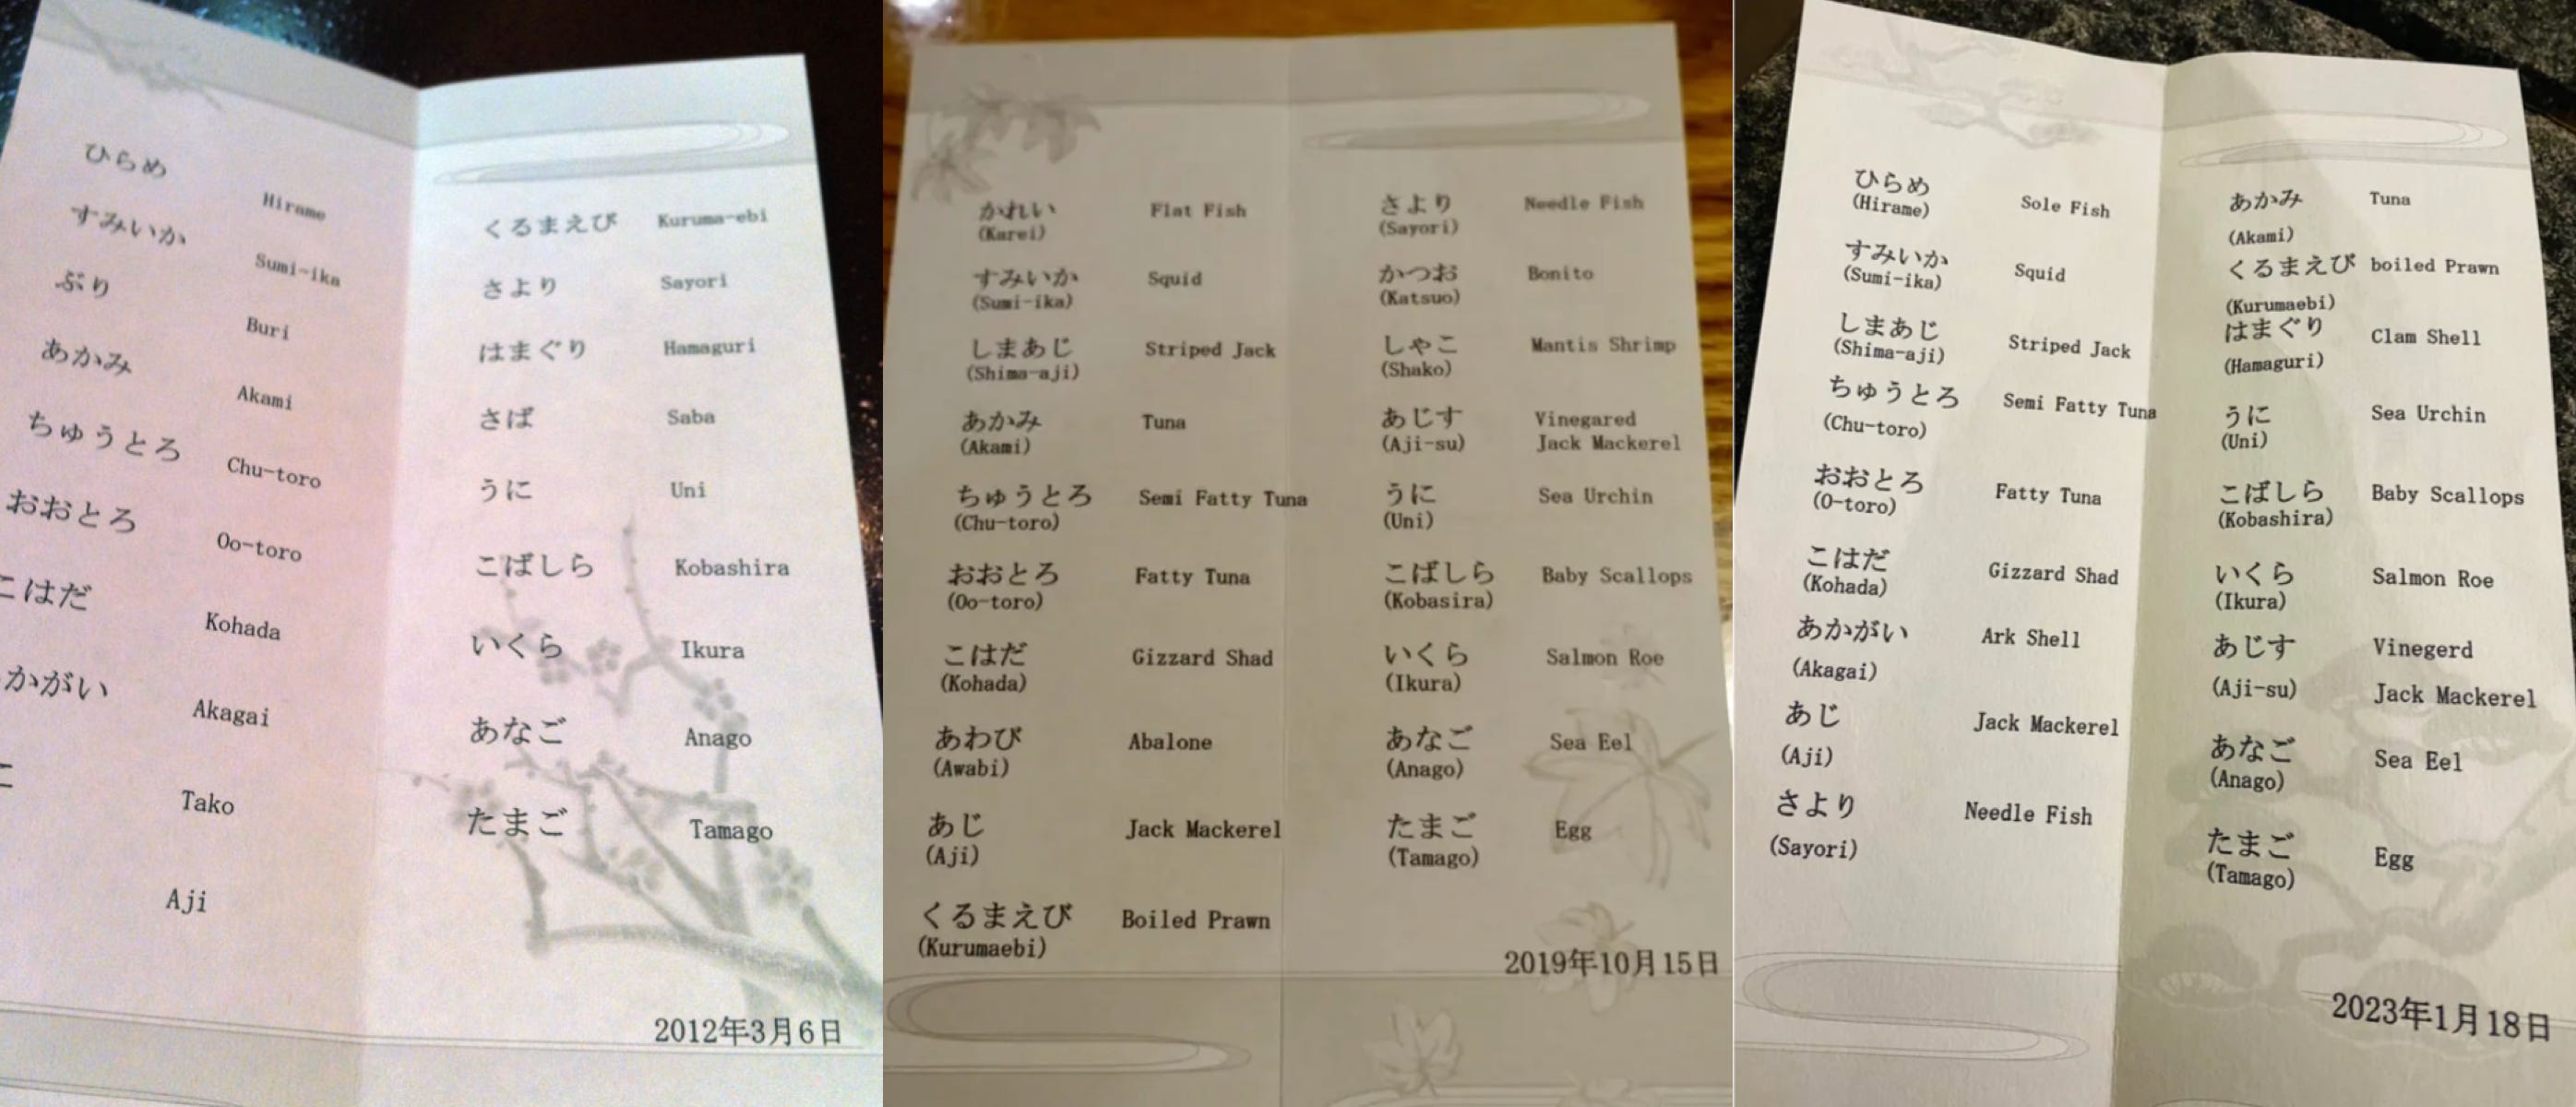 ひらめ Hirame
すみいか Sumi-ika
ぶり Buri
あかみ Akami
ちゅうとろ Chu-toro
おおとろ Oo-toro
こはだ Kohada
かがい Akagai
こ Tako
Aji
くるまえび Kuruma-ebi
さより Sayori
はまぐり Hamaguri
さば Saba
うに Uni
こばしら Kobashira
いくら Ikura
あなご Anago
たまご Tamago
2012年3月6日
かれい Flat Fish
(Karei)
すみいか Squid
(Sumi-ika)
しまあじ Striped Jack
(Shima-aji)
あかみ Tuna
(Akami)
ちゅうとろ Semi Fatty Tuna
(Chu-toro)
おおとろ Fatty Tuna
(Oo-toro)
こはだ Gizzard Shad
(Kohada)
あわび Abalone
(Awabi)
あじ Jack Mackerel
(Aji)
くるまえび Boiled Prawn
(Kurumaebi)
さより Needle Fish
(Sayori)
かつお Bonito
(Katsuo)
しゃこ Mantis Shrimp
(Shako)
あじす Vinegared
(Aji-su) Jack Mackerel
うに Sea Urchin
(Uni)
こばしら Baby Scallops
(Kobasira)
いくら Salmon Roe
(Ikura)
あなご Sea Eel
(Anago)
たまご Egg
(Tamago)
2019年10月15日
ひらめ Sole Fish
(Hirame)
すみいか Squid
(Sumi-ika)
しまあじ Striped Jack
(Shima-aji)
ちゅうとろ Semi Fatty Tuna
(Chu-toro)
おおとろ Fatty Tuna
(O-toro)
こはだ Gizzard Shad
(Kohada)
あかがい Ark Shell
(Akagai)
あじ Jack Mackerel
(Aji)
さより Needle Fish
(Sayori)
あかみ Tuna
(Akami)
くるまえび boiled Prawn
(Kurumaebi)
はまぐり Clam Shell
(Hamaguri)
うに Sea Urchin
(Uni)
こばしら Baby Scallops
(Kobashira)
いくら Salmon Roe
(Ikura)
あじす Vinegerd
(Aji-su) Jack Mackerel
あなご Sea Eel
(Anago)
たまご Egg
(Tamago)
2023年1月18日